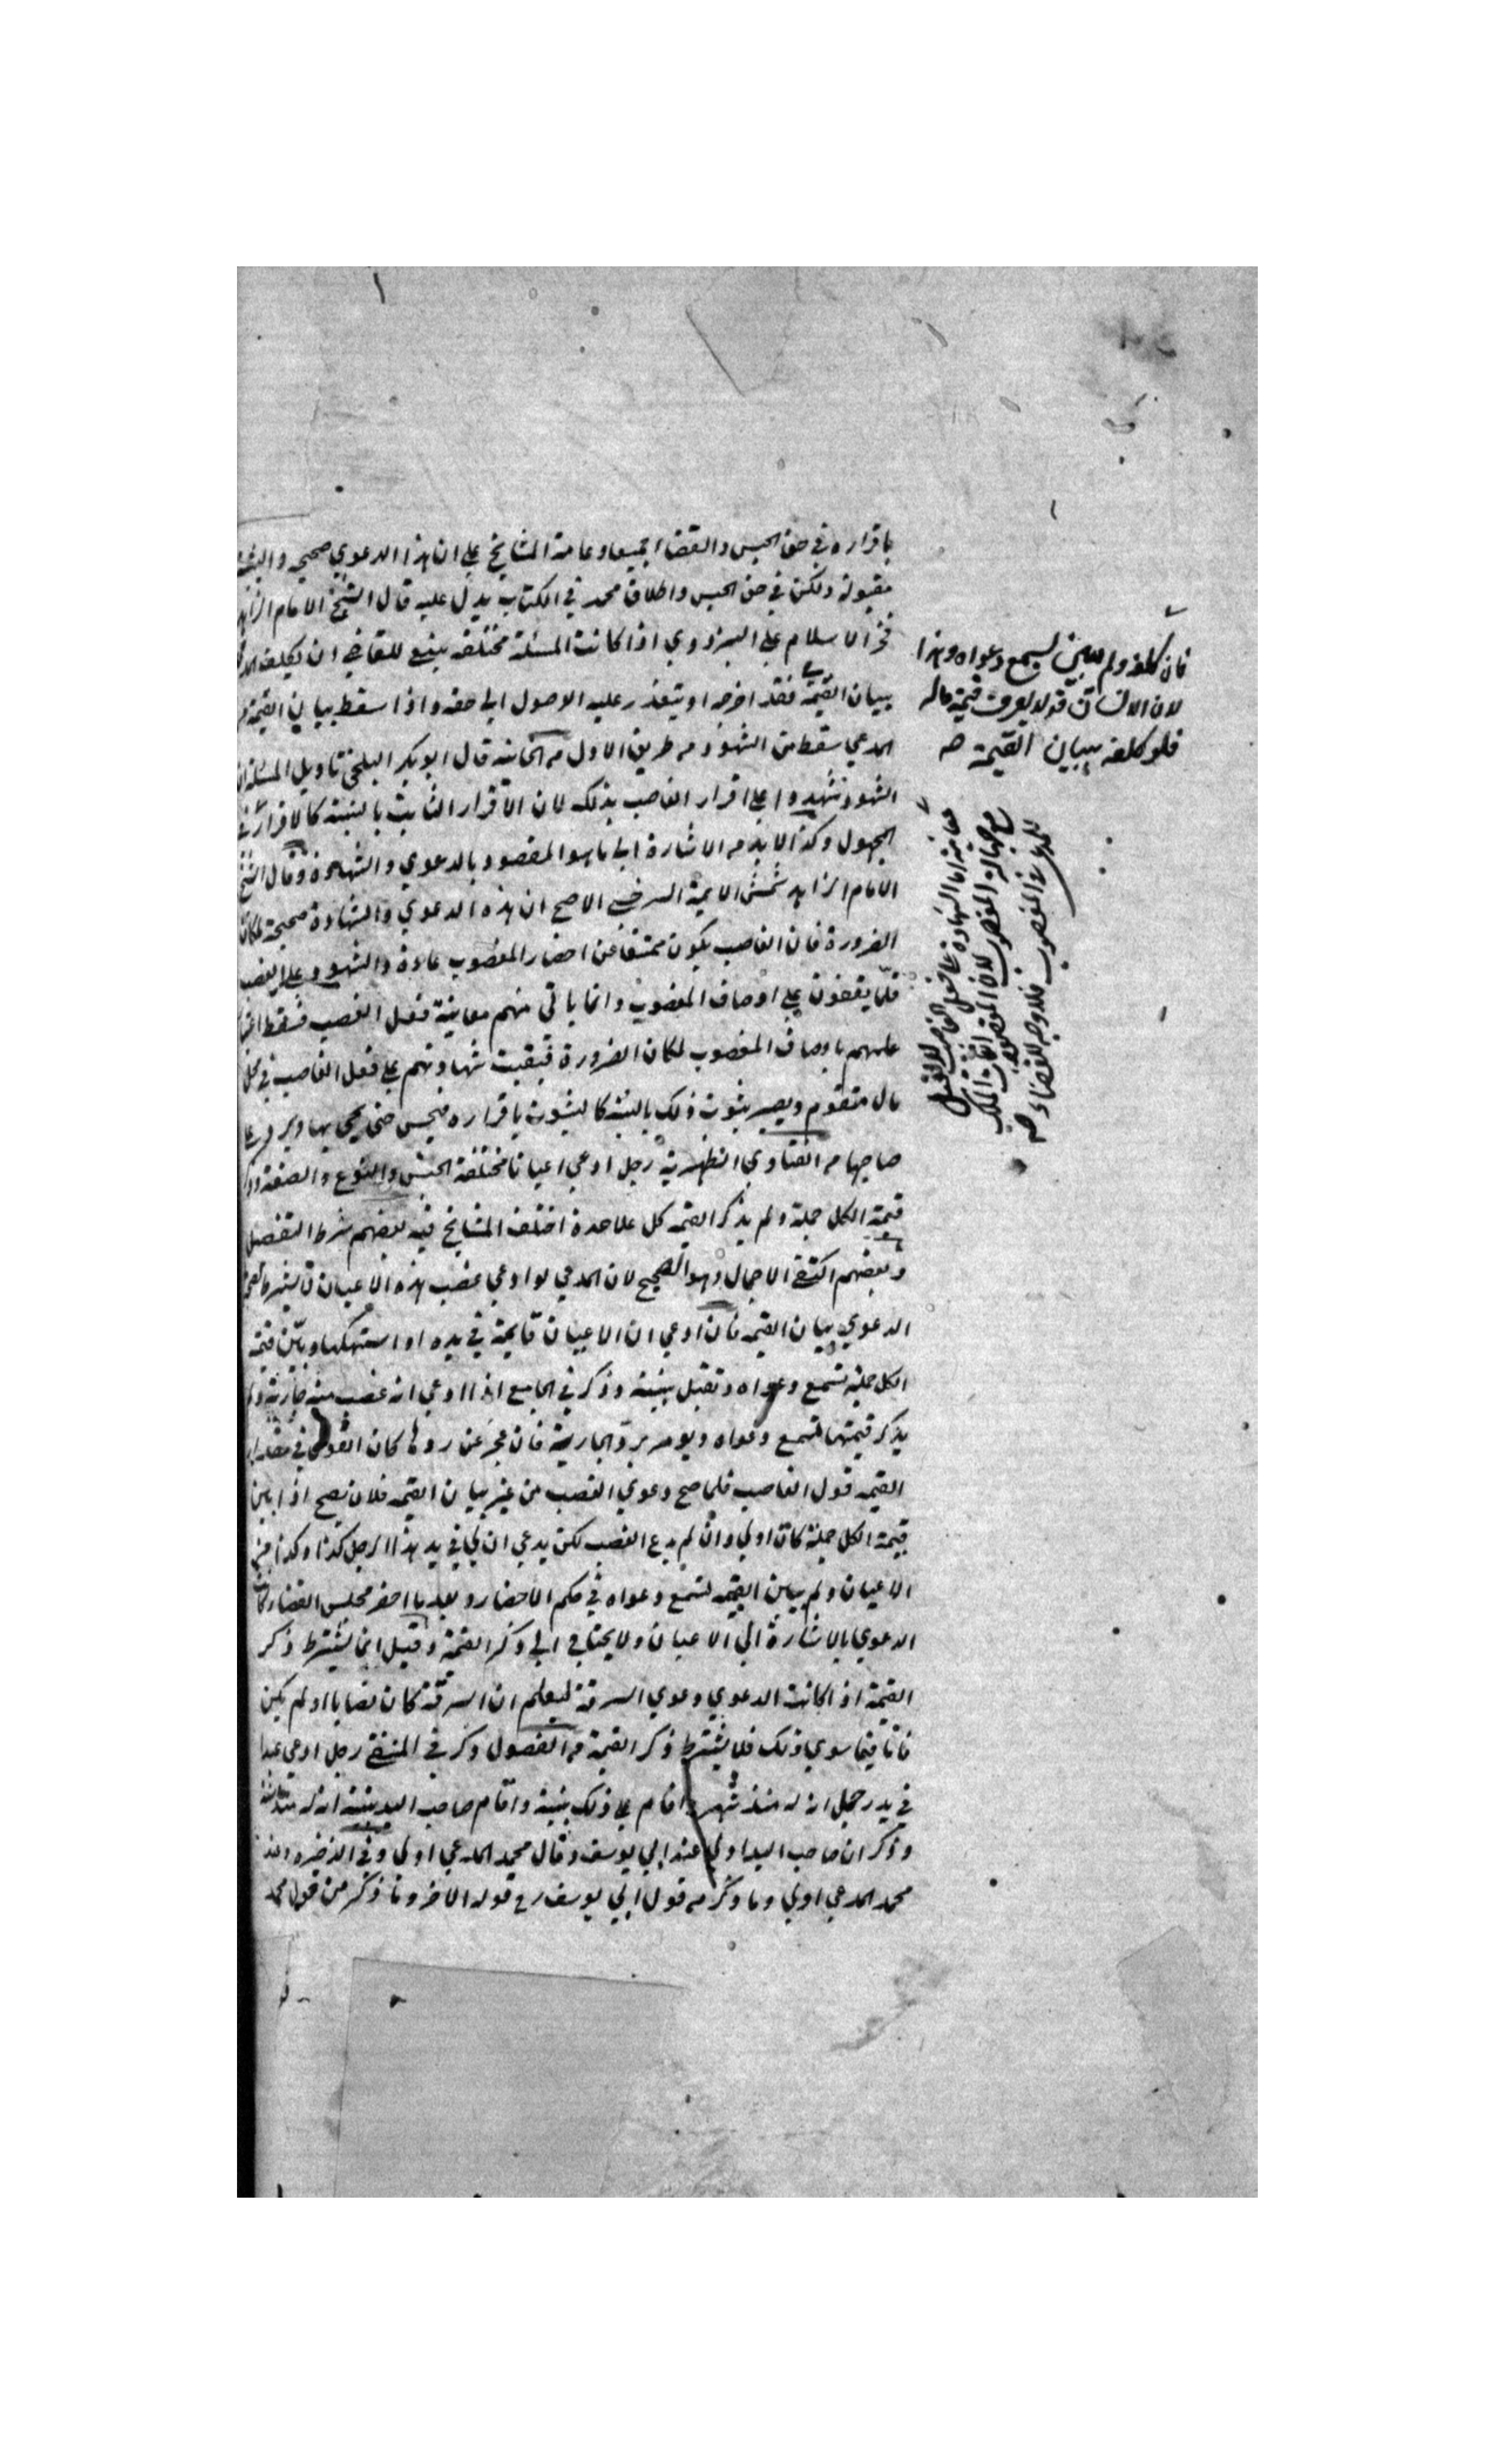 باقراره في حق الحبس والقضا جميعا وعامة المشايخ علي ان هذا الدعوي صحيح والبينة
مقبولة ولكن في حق الحبس واطلاق محمد في الكتاب يدل عليه قال الشيخ الامام الزاهد
فخر الاسلام علي البزدوي اذا كانت المسئلة مختلفة ينبغي للقاضي ان يكلف المدعي
ببيان القيمة فقد اضر به او يتعذر عليه الوصول الي حقه واذا سقط بيان القيمة
المدعي سقط من الشهود من طريق الاولي من الخانية قال ابو بكر البلخي تاويل المسئلة ان
الشهود شهدوا علي اقرار الغاصب بذلك لان الاقرار الثابت بالبينة كالاقرار في
المجهول وكذا لا بد من الاشارة الي ما هو المقصود بالدعوي والشهادة وقال الشيخ
الامام الزاهد شمس الايمة السرخسي الاصح ان هذه الدعوي والشهادة صحيحة لمكان
الضرورة فان الغاصب يكون ممتنعا عن احضار المغصوب عادة والشهود علي الغصب
قلما يقفون علي اوصاف المغصوب وانما ياتي منهم معاينة فعل الغصب فسقط اعتبار
علمهم باوصاف المغصوب لمكان الضرورة فبقيت شهادتهم علي فعل الغاصب في محل
مال متقوم ويصير ثبوت ذلك بالبينة كالثبوت باقراره فيحبس حتي يجي بها ويردها علي
صاحبها من الفتاوي الظهيرية رجل ادعي اعيانا مختلفة الجنس والنوع والصفة وذكر
قيمة الكل جملة ولم يذكر القيمة كل علاحدة اختلف المشايخ فيه بعضهم شرط التفصيل
وبعضهم اكتفي الاجمال وهو الصحيح لان المدعي لو ادعي غصب هذه الاعيان لا يشترط لصحة
الدعوي بيان القيمة فان ادعي ان الاعيان قايمة في يده او استهلكها وبين قيمة
الكل جملة تسمع دعواه وتقبل بينته وذكر في الجامع اذا ادعي انه غصب منه جارية ولم
يذكر قيمتها تسمع دعواه ويومر برد الجارية فان عجز عن ردها كان القول في مقدار
القيمة قول الغاصب فلما صح دعوي الغصب من غير بيان القيمة فلان يصح اذا بين
قيمة الكل جملة كان اولي وان لم يدع الغصب لكن يدعي ان لي في يد هذا الرجل كذا وكذا من
الاعيان ولم يبين القيمة تسمع دعواه في حكم الاحضار وبعد ما احضر مجلس القضا وكانت
الدعوي بالاشارة الي الاعيان ولا يحتاج الي ذكر القيمة وقيل انما يشترط ذكر
القيمة اذا كانت الدعوي دعوي السرقة ليعلم ان السرقة كان نصابا او لم يكن
فاما فيما سوي ذلك فلا يشترط ذكر القيمة من الفصول وذكر في المنتقي رجل ادعي عبدا
في يد رجل انه له منذ شهر واقام علي ذلك بينة واقام صاحب اليد بينة انه له منذ سنة
وذكر ان صاحب اليد اولي عند ابي يوسف وقال محمد المدعي اولي وفي الذخيرة وعند
محمد المدعي اولي وما ذكر من قول ابي يوسف رح قوله الاخر وما ذكر من قول محمد
فان كلفه ولم يبين تسمع دعواه وهذا
لان الانسان قد لا يعرف قيمة ماله
فلو كلفه ببيان القيمة صح